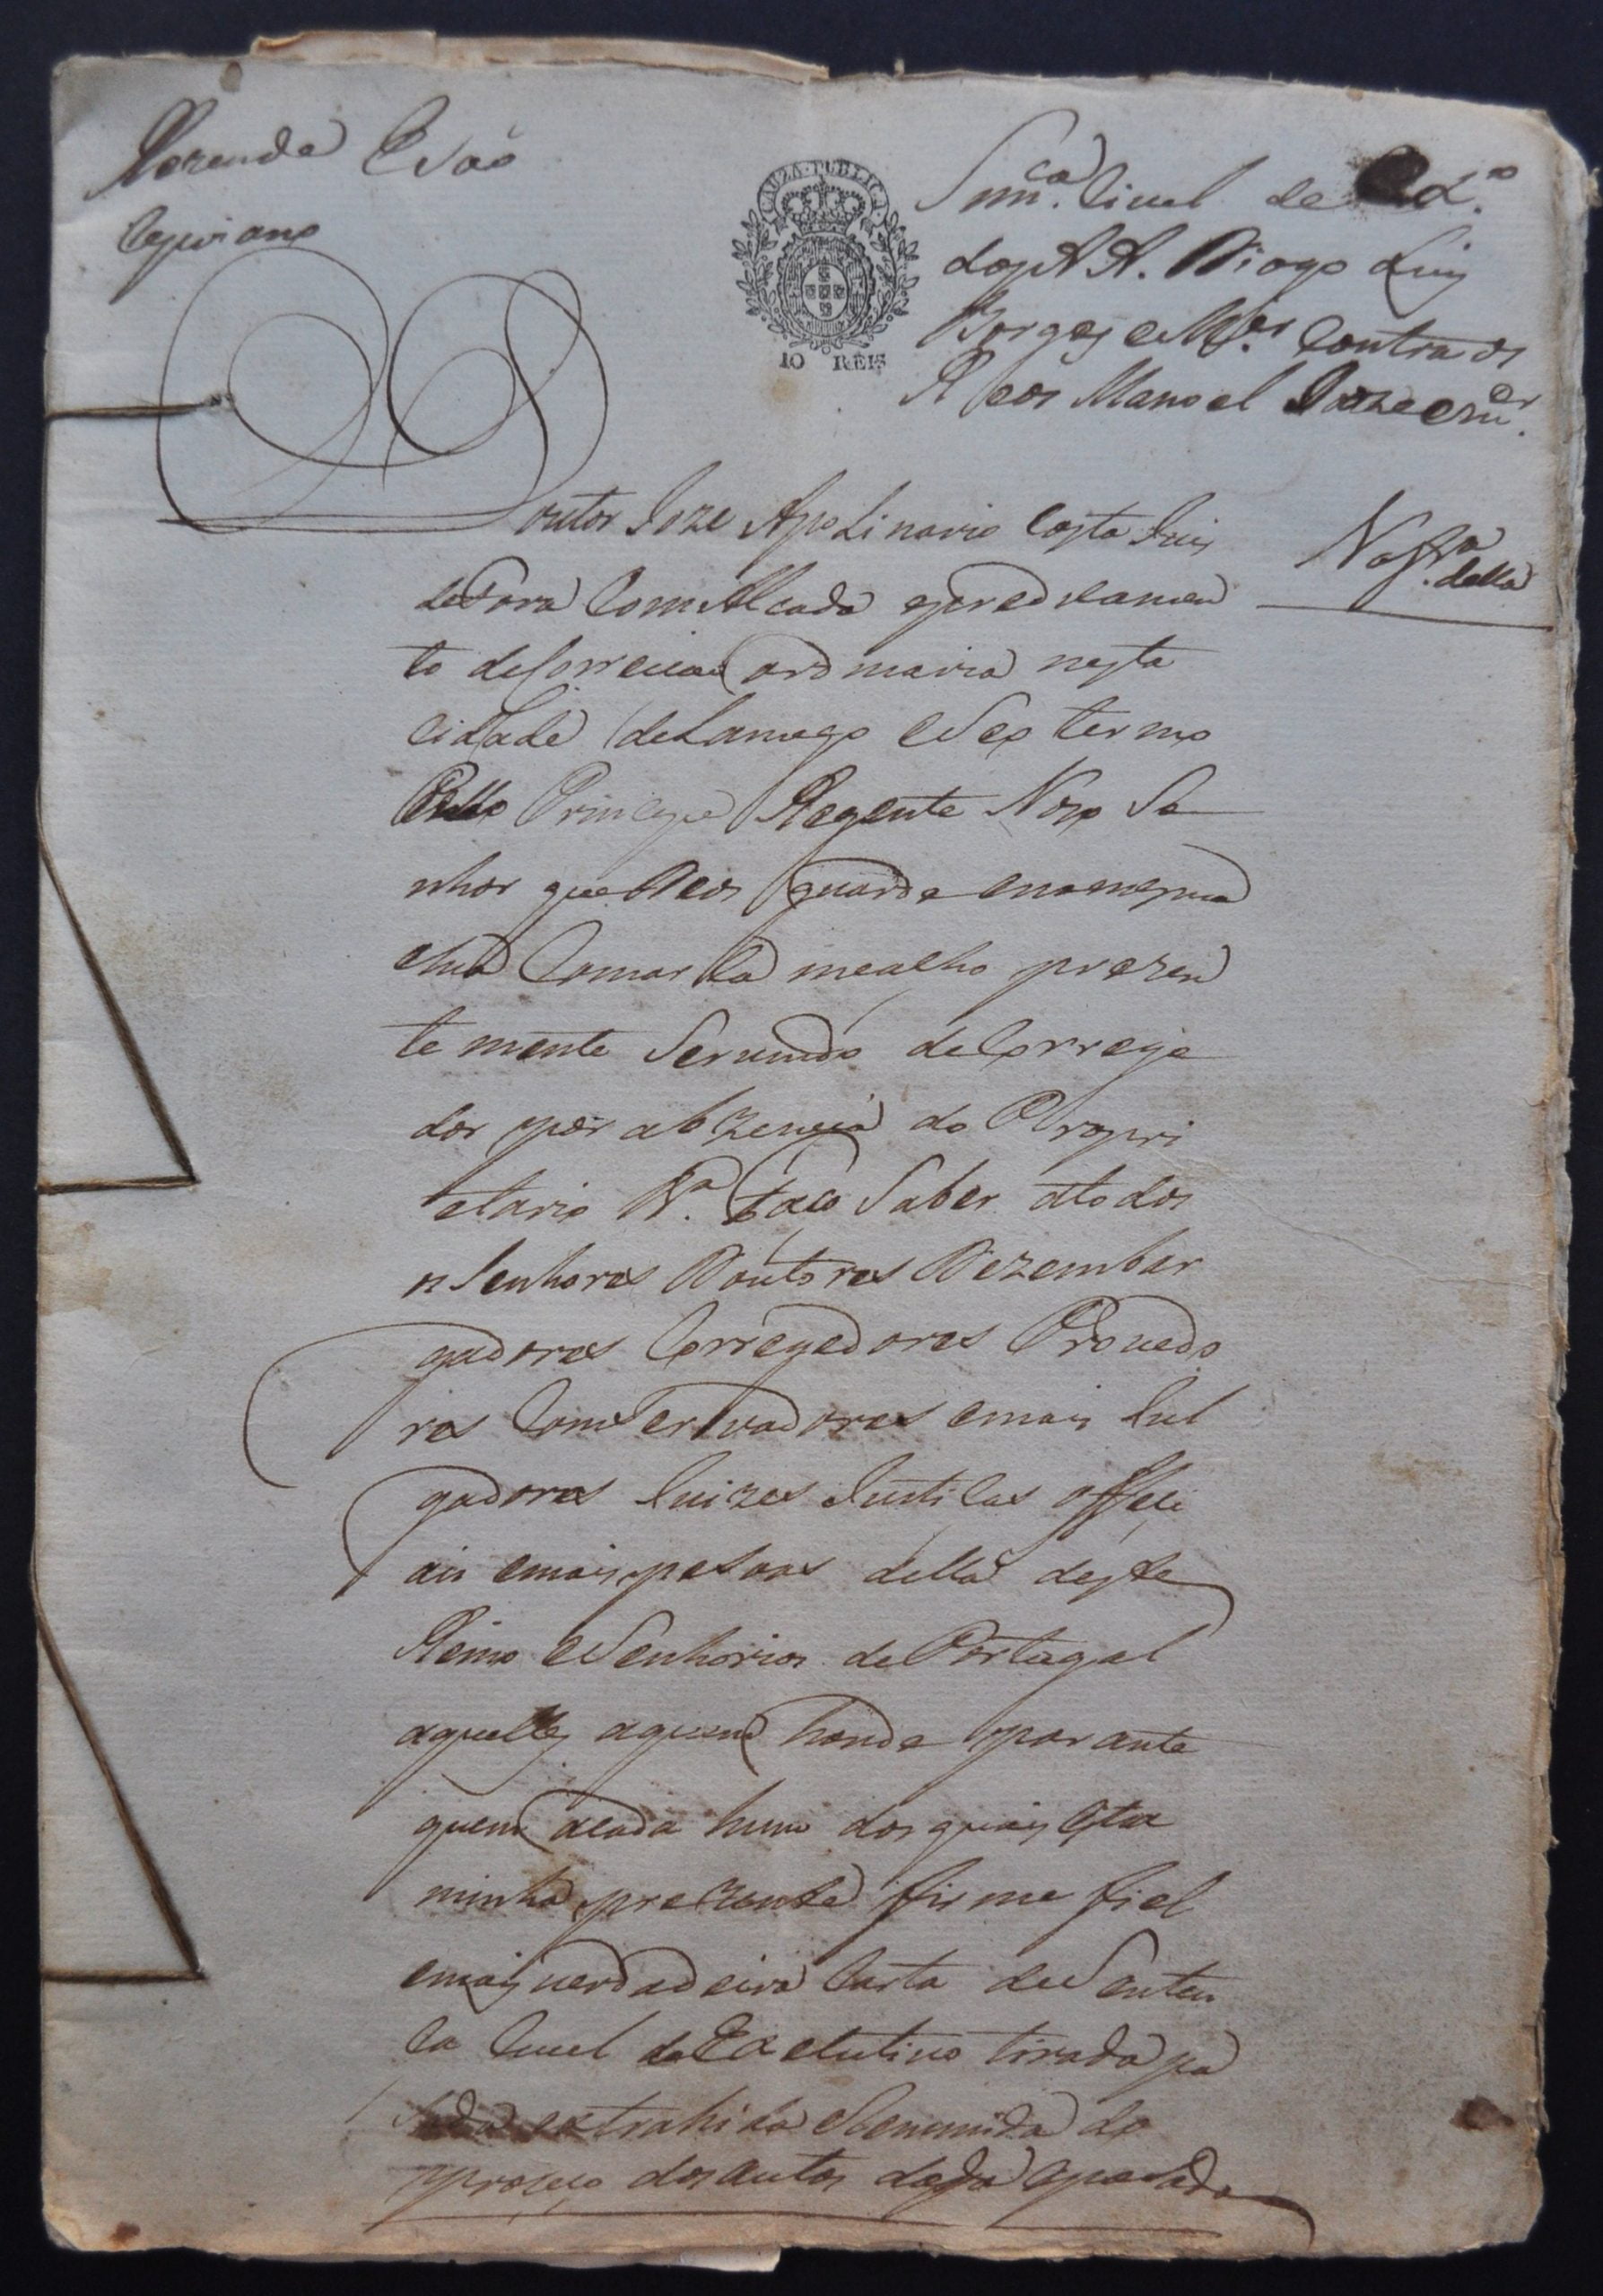 Rezende e São
Cepriano
CAUZA PUBLICA
10 REIS
Snn.ca Civel de
dos A A. Diogo Luiz
Borges e M.er Contra os
Reos Manoel Joze e m.er
Doutor Joze Apolinario Costa Juis
de Fora Com Alcada e predicamen
to de Correicaõ ordinaria nesta
cidade de Lamego e Seo termo
Pello Principe Regente Noso Se
nhor que Deos guarde e na mesma
e sua Comarca
te mente Servindo de Correge
dor por abzencia do Propri
etario V.a Faco Saber atodos
os Senhores Doutores Dezembar
gadores Corregedores Provedo
res Comservadores emais Jul
gadores Juizes Justicas offeci
ais emais pesoas della deste
Reino e Senhorios de Portugal
aquelles aquem honde e perante
quem acada hum dos quais esta
minha prezente firme fiel
emais verdadeira Carta de Senten
ca Civel de Executivo tirada pa
sada extrahida e Remmida do
proseco dos autos